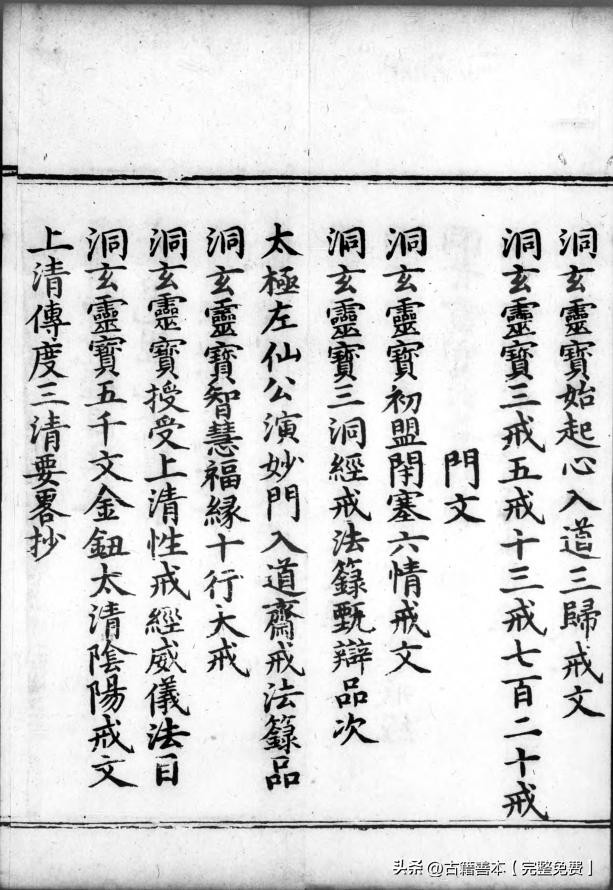 洞玄靈寶始起心入道三歸戒文
洞玄靈寶三戒五戒十三戒七百二十戒
門文
洞玄靈寶初盟閇塞六情戒文
洞玄靈寶三洞經戒法籙甄辯品次
太極左仙公演妙門入道齋戒法籙品
洞玄靈寶智慧福縁十行大戒
洞玄靈寶授受上清性戒經威儀法目
洞玄靈寶五千文金鈕太清陰陽戒文
上清傳度三清要畧抄
头条@古籍善本【完整免费】